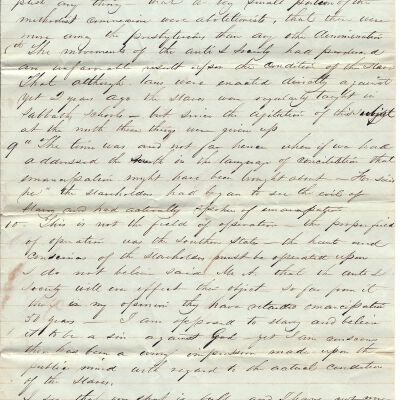 past any thing — that a very small portion of the
methodist connexion were abolitionists, that there were
more among the presbyterians than any other denomination
8th The movements of the anti S Society had produced
an unfavorable result upon the condition of the slaves
That although laws were enacted directly against
yet 2 years ago the slaves were regularly taught in
Sabbath Schools — but since the agitation of this subject
at the north these things were given up
9" The time was and not far hence when if we had
addressed the South in the language of conciliation that
emancipation might have been brought about — For said
he" the slaveholders had began to see the evils of
slavery and had actually spoken of emancipation
10 — This is not the field of operation — the proper field
of operation was the Southern State — the heart and
conscience of the slaveholders must be operated upon
I do not believe said Mr A. that the anti S
Society will ever effect their object so far from it
that in my opinion they have retarded emancipation
50 years — I am opposed to slavery and believe
it to be a sin against God — yet I am conscious
there has been a wrong impression made upon the
public mind with regard to the actual condition
of the slaves.
I see that you